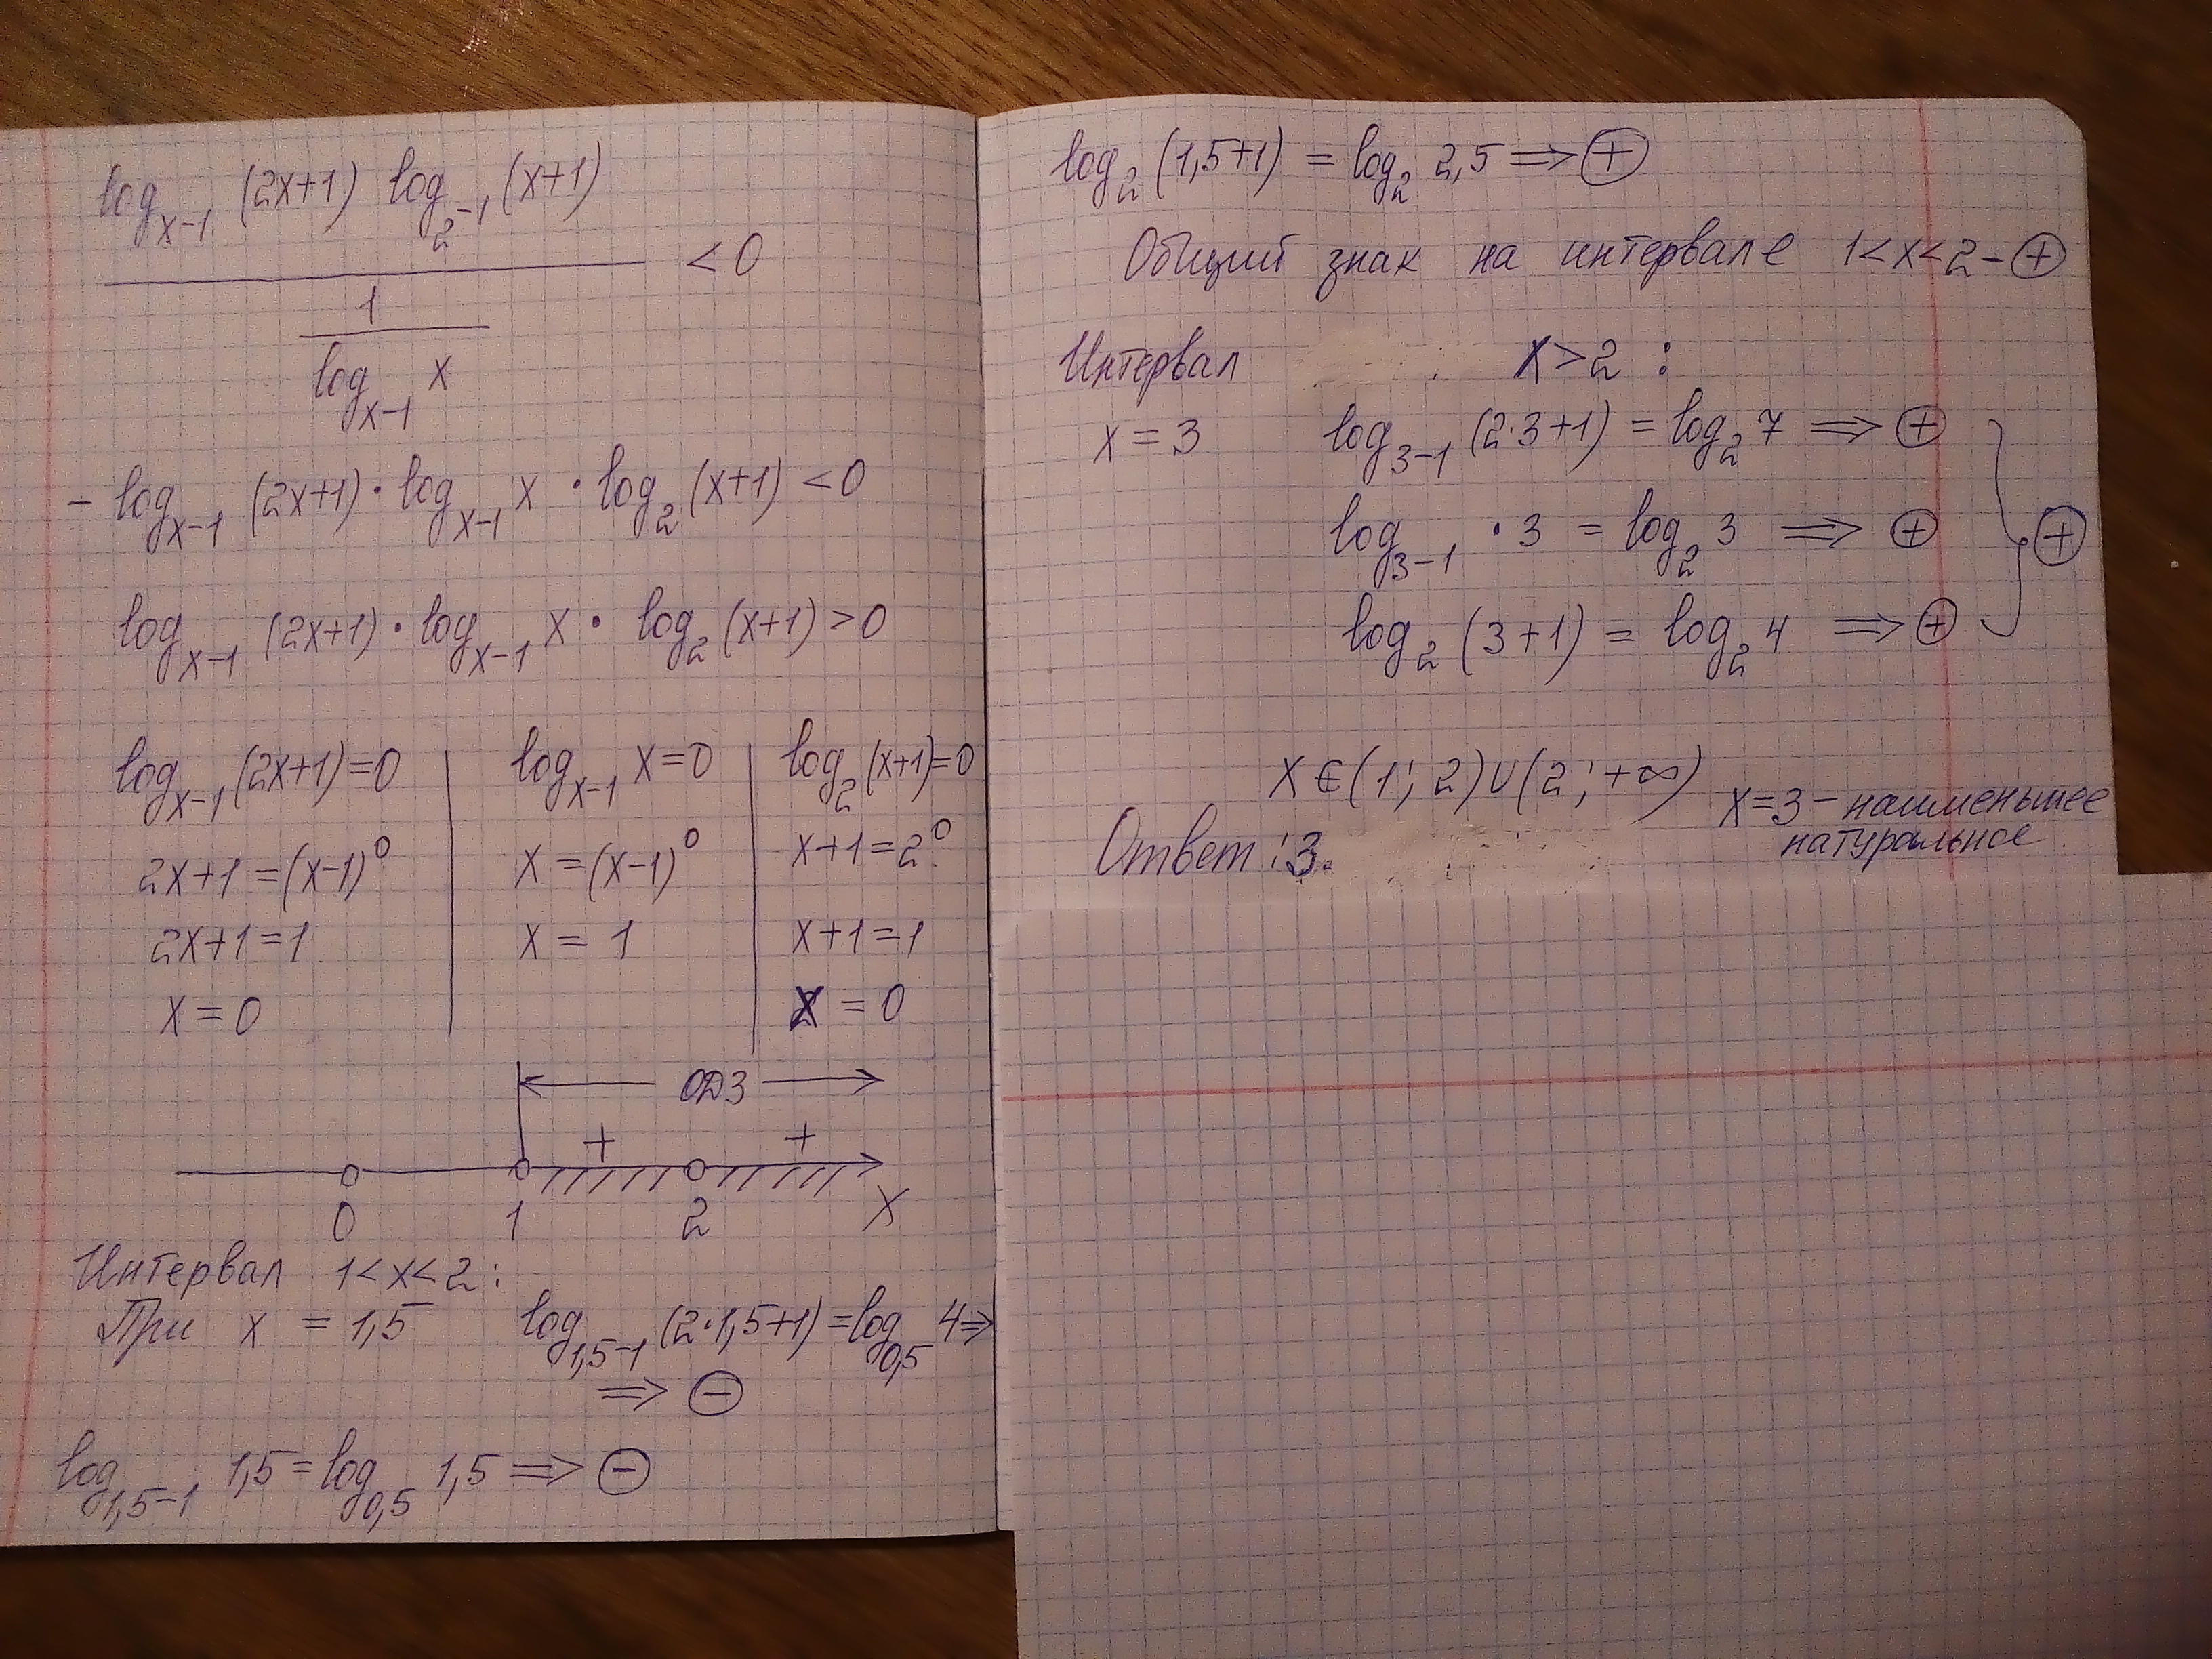 log_{x-1} (2x+1) log_{2^{-1}} (x+1)
< 0
1
log_{x-1} x
- log_{x-1} (2x+1) · log_{x-1} x · log_2 (x+1) < 0
log_{x-1} (2x+1) · log_{x-1} x · log_2 (x+1) > 0
log_{x-1} (2x+1) = 0
2x+1 = (x-1)^0
2x+1 = 1
x = 0
log_{x-1} x = 0
x = (x-1)^0
x = 1
log_2 (x+1) = 0
x+1 = 2^0
x+1 = 1
x = 0
ОДЗ
+ +
0 1 2 x
Интервал 1 < x < 2 :
При x = 1,5 log_{1,5-1} (2·1,5+1) = log_{0,5} 4 ⇒
⇒ ⊖
log_{1,5-1} 1,5 = log_{0,5} 1,5 ⇒ ⊖
log_2 (1,5+1) = log_2 2,5 ⇒ ⊕
Общий знак на интервале 1 < x < 2 - ⊕
Интервал x > 2 :
x = 3 log_{3-1} (2·3+1) = log_2 7 ⇒ ⊕
log_{3-1} · 3 = log_2 3 ⇒ ⊕ ⊕
log_2 (3+1) = log_2 4 ⇒ ⊕
x ∈ (1; 2) ∪ (2; +∞)
x = 3 - наименьшее
натуральное
Ответ : 3.